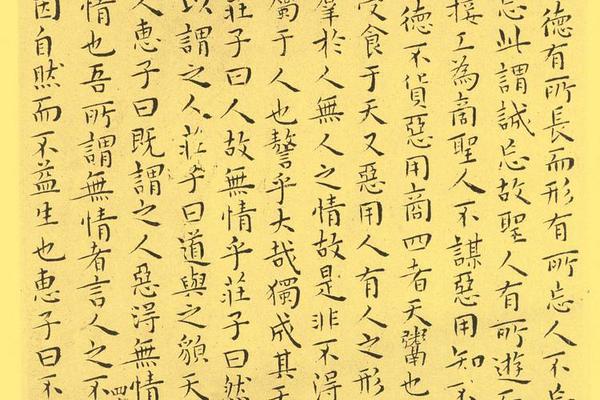 德有所長而形有所忘人不忘
忘此謂誠忘故聖人有所遊而
接工為商聖人不謀惡用知不
德不貨惡用商四者天鬻也
受食于天又惡用人有人之形
羣於人無人之情故是非不得
屬于人也謷乎大哉獨成其天
莊子曰人故無情乎莊子曰然
以謂之人莊子曰道與之貌天
人惠子曰既謂之人惡得無情
情也吾所謂無情者言人之不
因自然而不益生也惠子曰不